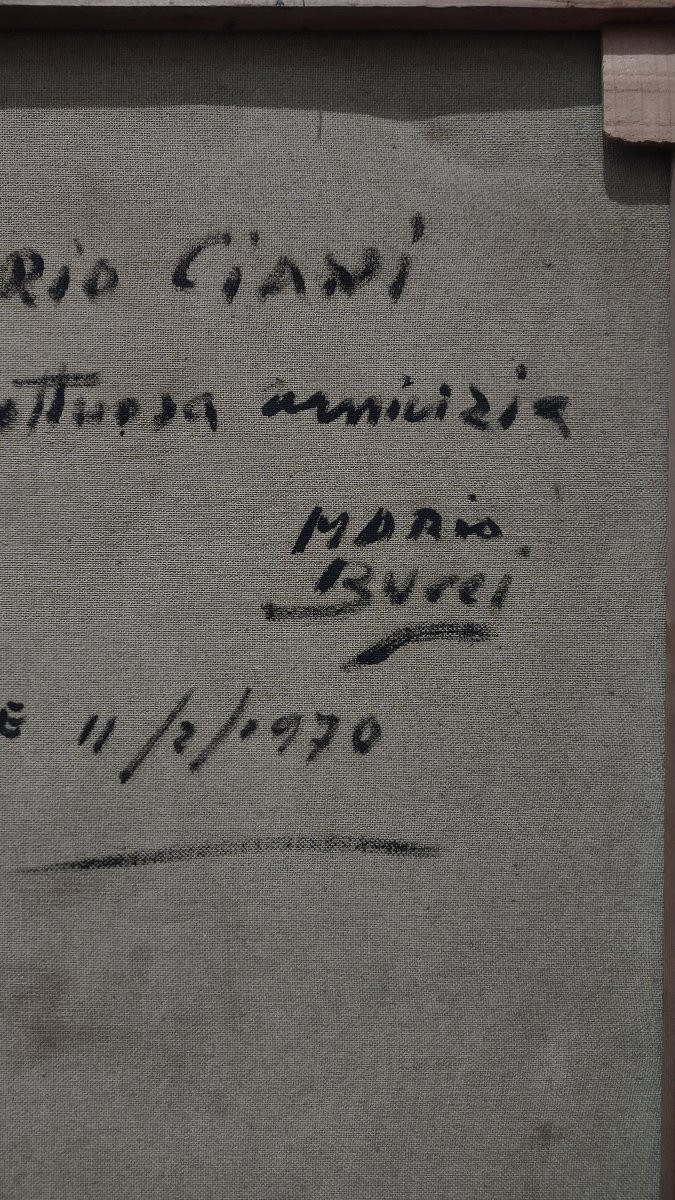 RIO CIANI
ettuosa amicizia
MARIO
BUCCI
E 11/2/1970